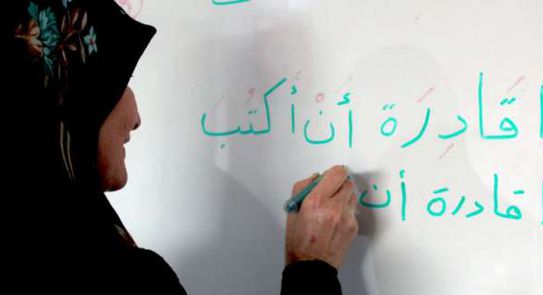 ا قَادِرَة أَنْ أَكتُبَ
ا قادرة أن